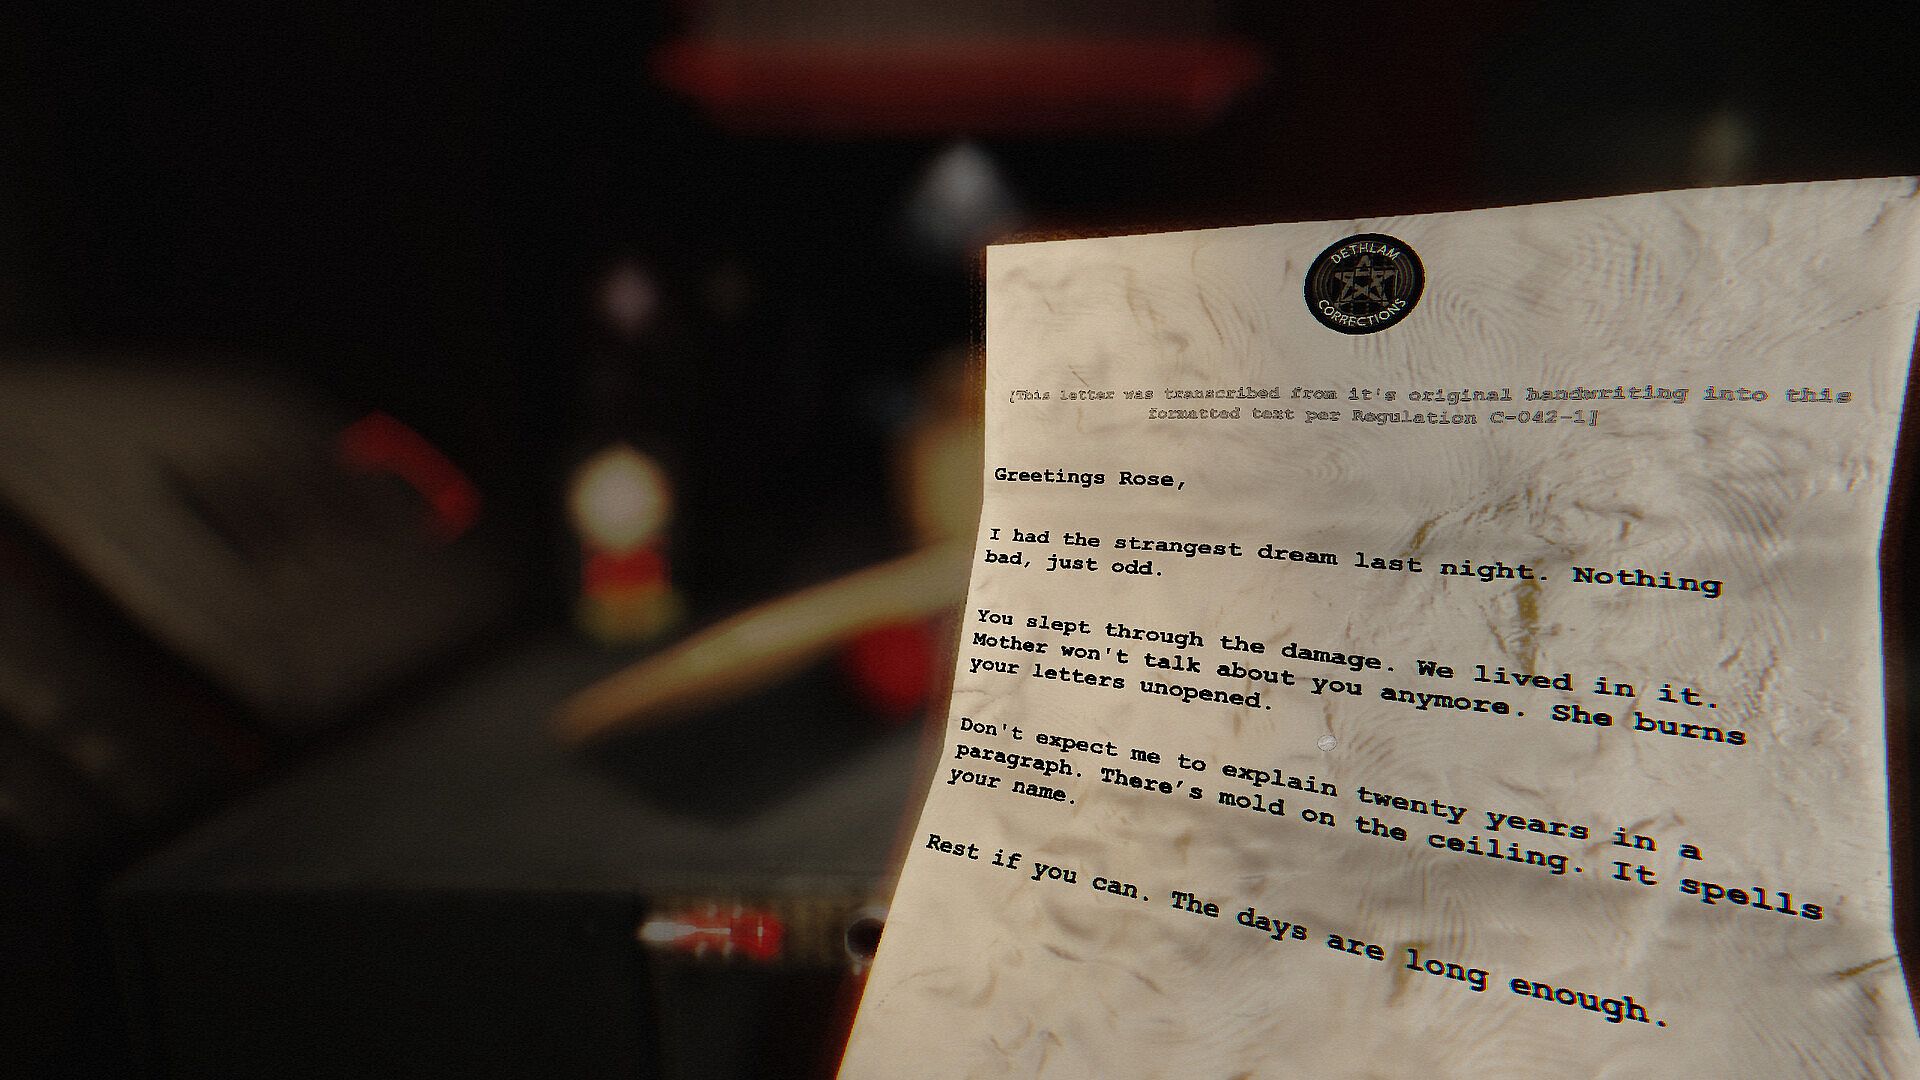 DETHLAM
CORRECTIONS
[This letter was transcribed from it's original handwriting into this
formatted text per Regulation C-042-1]
Greetings Rose,
I had the strangest dream last night. Nothing
bad, just odd.
You slept through the damage. We lived in it.
Mother won't talk about you anymore. She burns
your letters unopened.
Don't expect me to explain twenty years in a
paragraph. There’s mold on the ceiling. It spells
your name.
Rest if you can. The days are long enough.